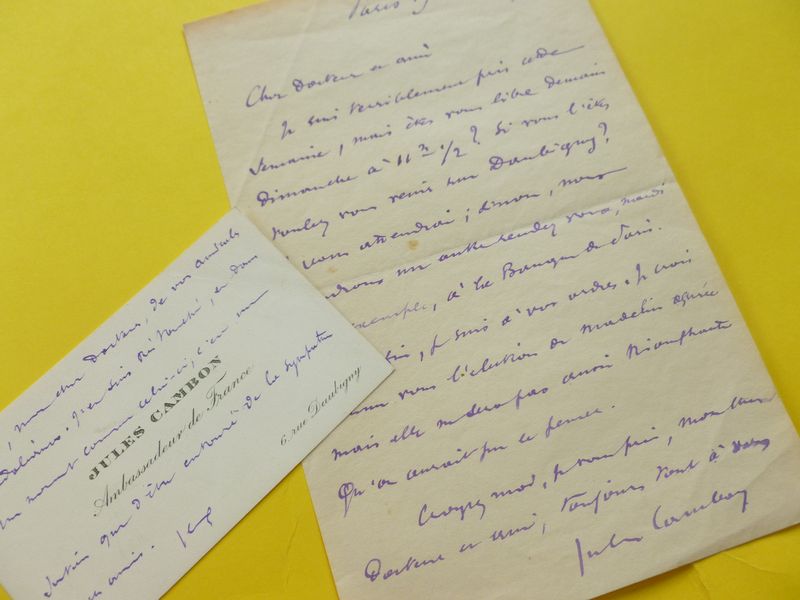 Paris
Cher Docteur et ami
Je suis terriblement pris cette
semaine, mais êtes vous libre demain
dimanche à 11 h 1/2 ? Si vous l'êtes
voulez vous venir rue Daubigny ?
vous attendrai ; sinon, nous
un autre rendez vous, mardi
exemple, à la Banque de Paris.
je suis à vos ordres. Je crois
vous l'élection de Madelin assurée
mais elle ne sera pas aussi triomphante
Qu'on aurait pu le penser.
Croyez moi, je vous prie, mon cher
Docteur et ami, toujours tout à vous
Jules Cambon
, mon cher Docteur, de vos amicales
condoléances. J'en suis très touché, et dans
un moment comme celui-ci, c'est une
JULES CAMBON
Ambassadeur de France
6, rue Daubigny
que d'être entouré de la sympathie
amis.